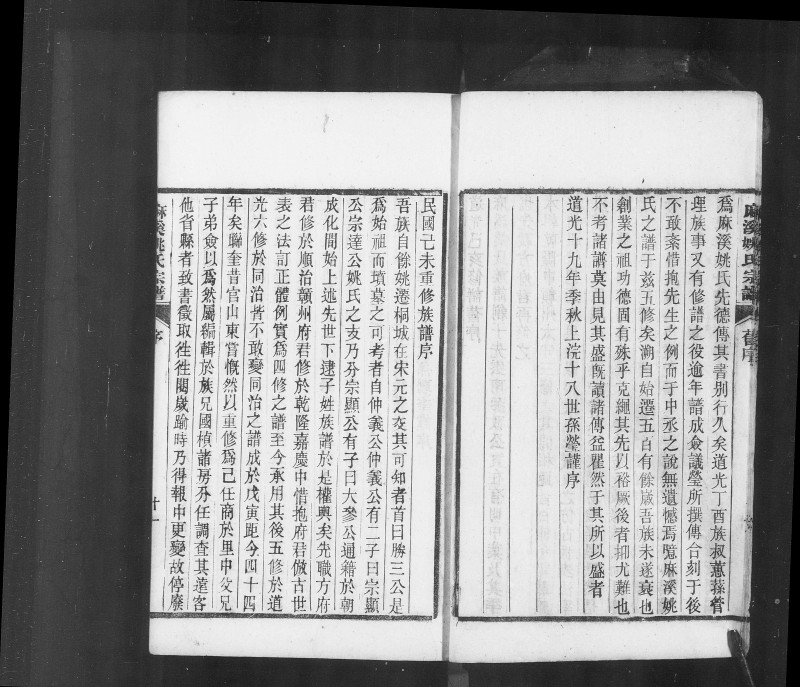 麻溪姚氏宗譜 舊序
爲麻溪姚氏先德傳其書別行久矣道光丁酉族叔蕙蓀管
理族事又有修譜之役逾年譜成僉議瑩所撰傳合刻于後
不敢紊惜抱先生之例而于中丞之說無遺憾焉嘗麻溪姚
氏之譜于兹五修矣溯自始遷五百有餘歲吾族未遂衰也
創業之祖功德固有殊乎克繩其先以裕厥後者抑尤難也
不考諸譜莫由見其盛旣讀諸傳益瞿然于其所以盛者
道光十九年季秋上浣十八世孫瑩謹序
民國己未重修族譜序
吾族自餘姚遷桐城在宋元之交其可知者首曰勝三公是
爲始祖而墳墓之可考者自仲義公仲義公有二子曰宗顯
公宗達公姚氏之支乃分宗顯公有子曰大參公通籍於朝
成化間始上述先世下逮子姓族譜於是權輿矣先職方府
君修於順治贛州府君修於乾隆嘉慶中惜抱府君倣古世
表之法訂正體例實爲四修之譜至今承用其後五修於道
光六修於同治皆不敢變同治之譜成於戊寅距今四十四
年矣聯奎昔官山東嘗慨然以重修爲己任商於里中父兄
子弟僉以爲然屬編輯於族兄國楨諸房分任調查其遠客
他省縣者致書徵取徃徃閱歲踰時乃得報中更變故停廢
麻溪姚氏宗譜 序 十一